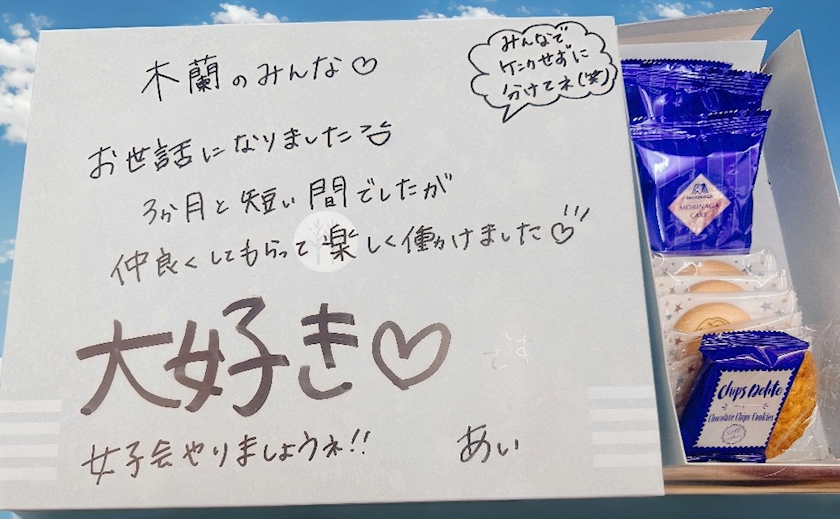 木蘭のみんな♡
みんなで
ケンカせずに
分けてネ(笑)
お世話になりました
3か月と短い間でしたが
仲良くしてもらって楽しく働けました♡
大好き♡
です
女子会やりましょうネ!!
あい
MORINAGA
MORINAGA
CAKE
Chips Delite
Chocolate Chips Cookies